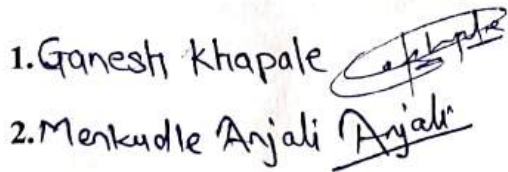 1. Ganesh Khapale
2. Menkudle Anjali Anjali